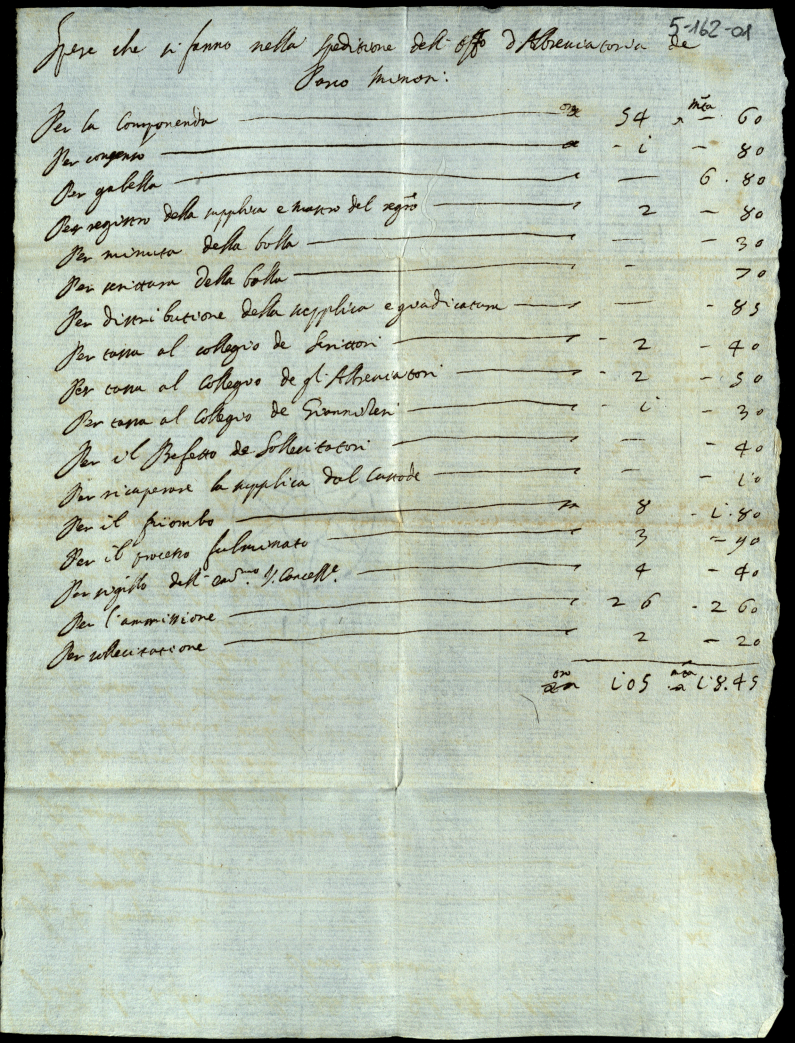 5-162-01
Spese che si fanno nella speditione dell' offo d'Abbreviatoria de
Parco minori:
Per la Componenda — oro 54 — mta 60
Per consenso — - i - 80
Per gabella — — 6.80
Per registro della supplica e mastro del regro — 2 - 80
Per minuta della bolla — — - 30
Per scrittura della bolla — - 70
Per distributione della supplica e giudicatura — — - 85
Per tassa al collegio de Scrittori — - 2 - 40
Per tassa al Collegio de gl'Abbreviatori — - 2 - 50
Per tassa al Collegio de Giannizeri — - i - 30
Per il Prefetto de Sollecitatori — — - 40
Per ricuperare la supplica dal Custode — - - i0
Per il piombo — 8 - i.80
Per il processo fulminato — 3 - 90
Per sigillo dell' — 4 - 40
Per l'ammissione — 26 - 2 60
Per sollecitatione — 2 - 20
oro i05 mta i8.45